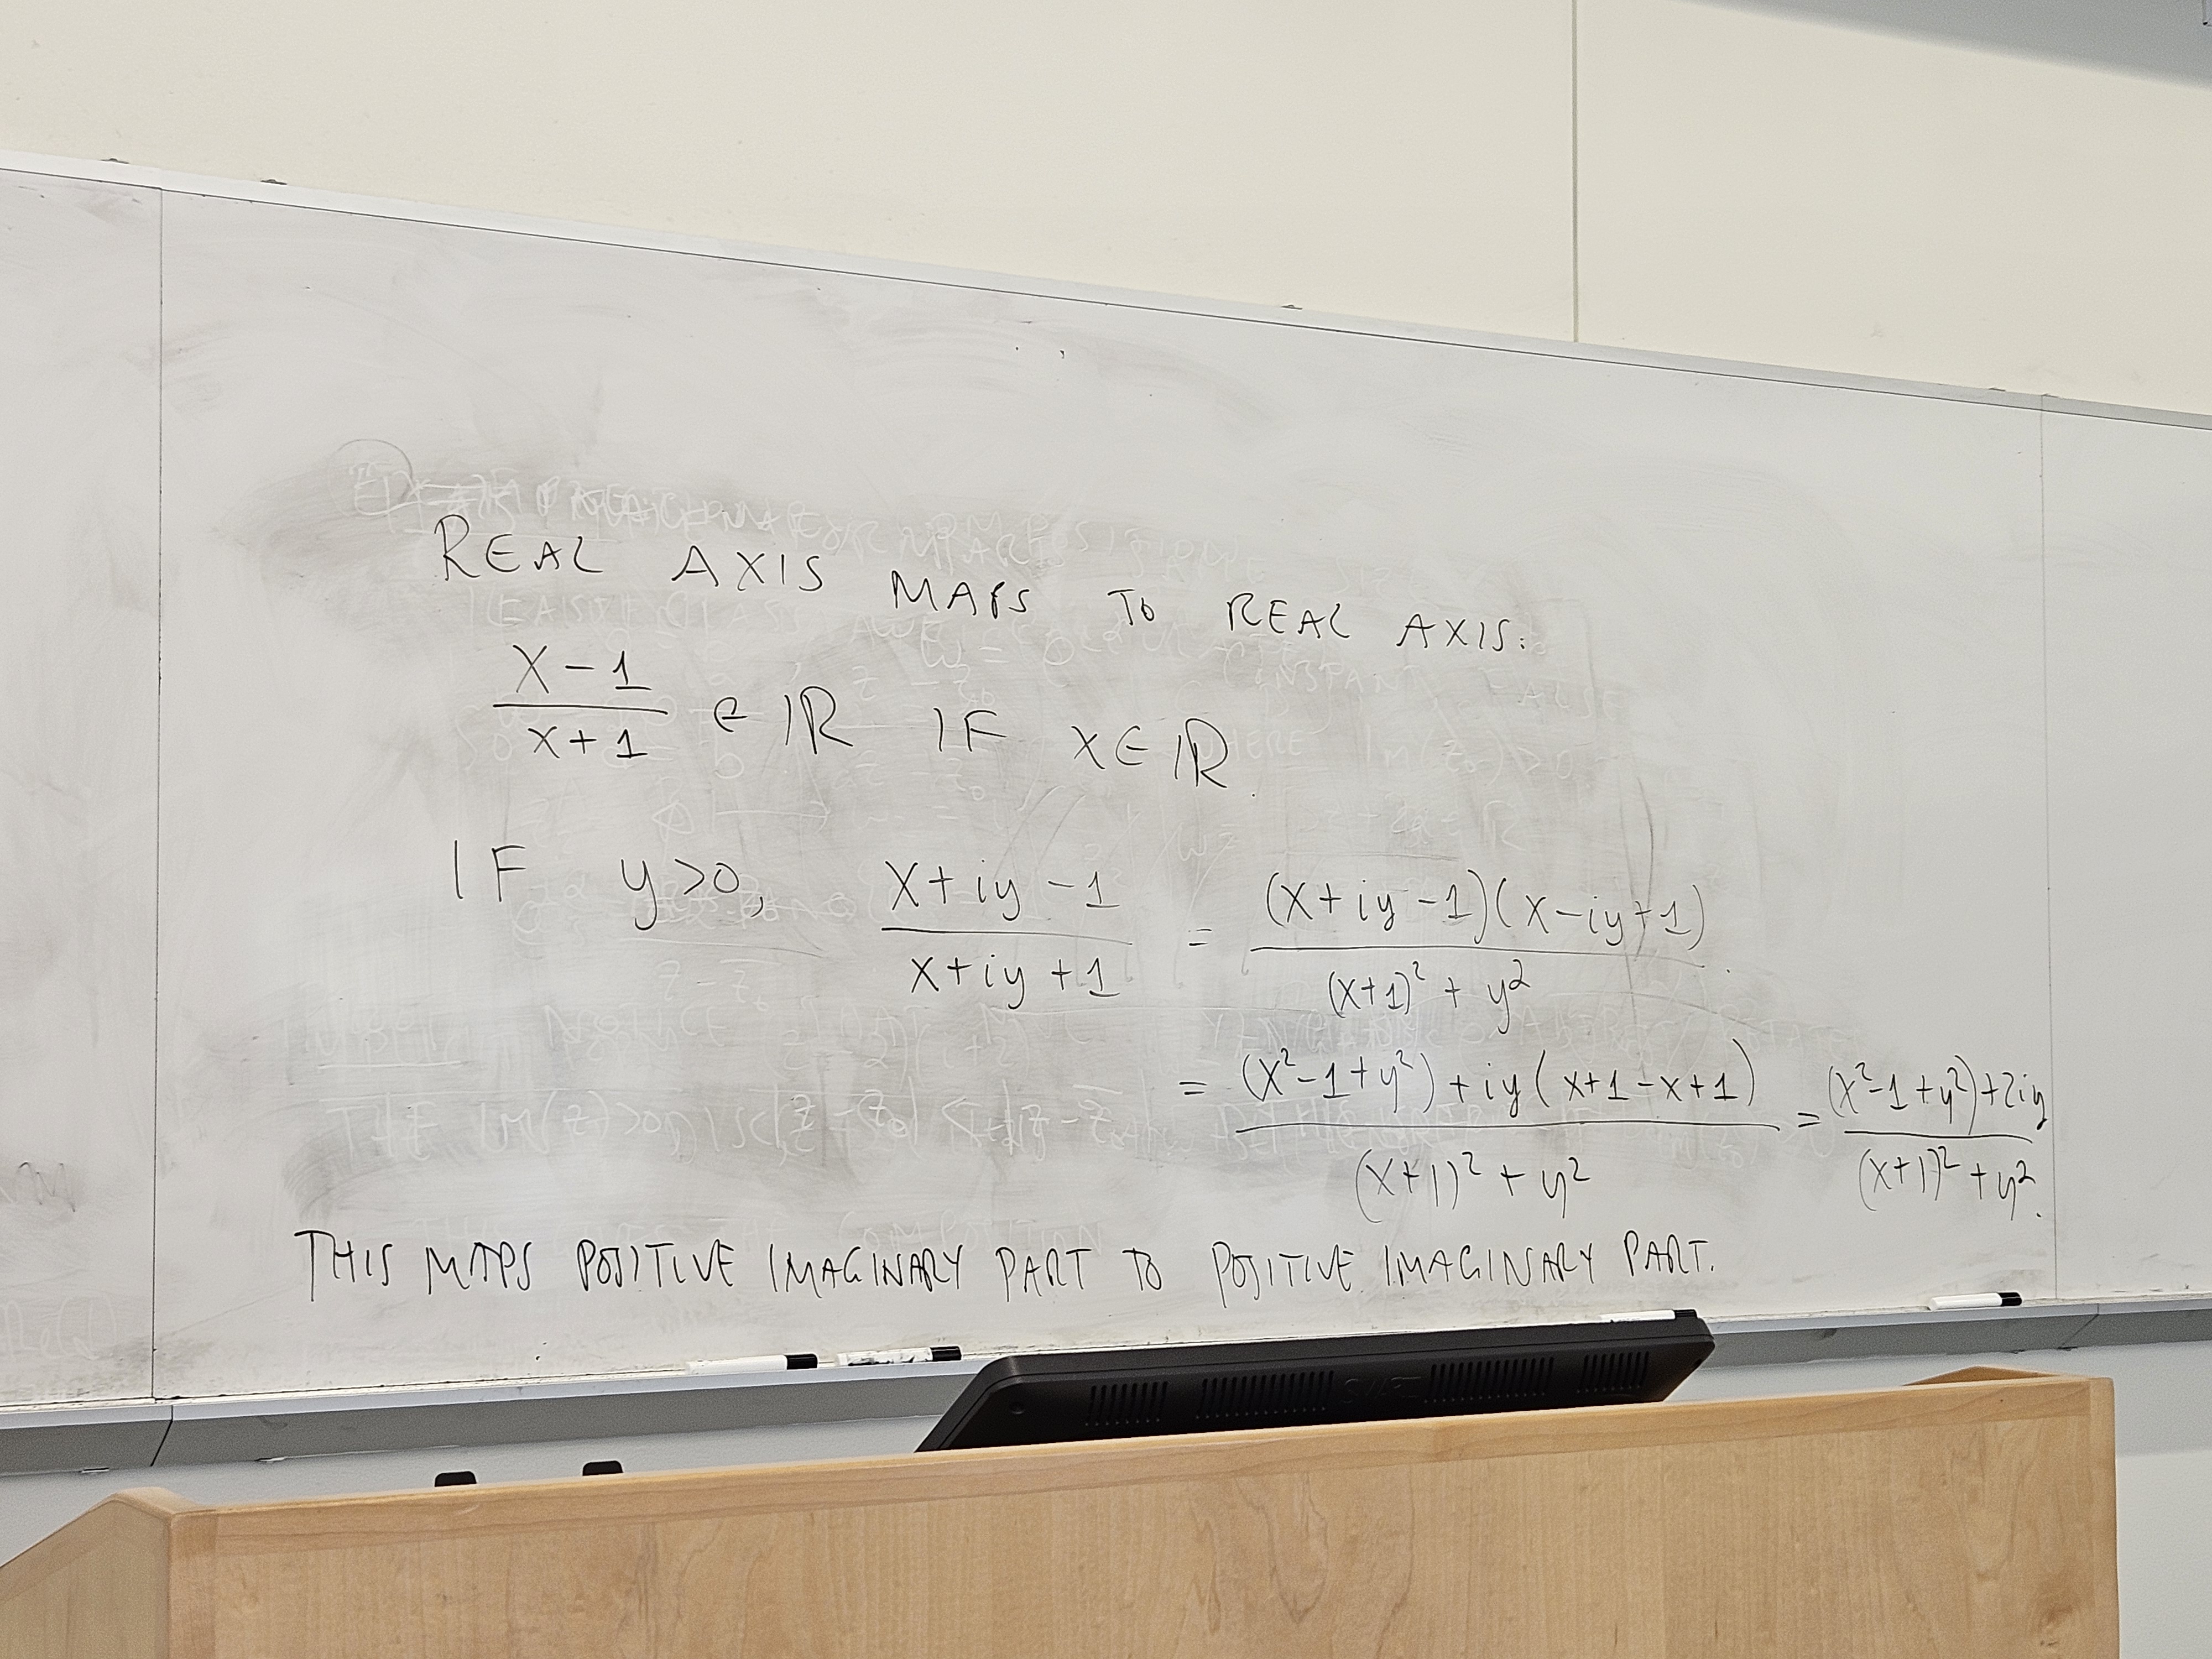 REAL AXIS MAPS TO REAL AXIS:
(x-1)/(x+1) ∈ ℝ IF x∈ℝ.
IF y>0, (x+iy-1)/(x+iy+1) = ((x+iy-1)(x-iy+1))/((x+1)²+y²).
= ((x²-1+y²)+iy(x+1-x+1))/((x+1)²+y²) = ((x²-1+y²)+2iy)/((x+1)²+y²).
THIS MAPS POSITIVE IMAGINARY PART TO POSITIVE IMAGINARY PART.